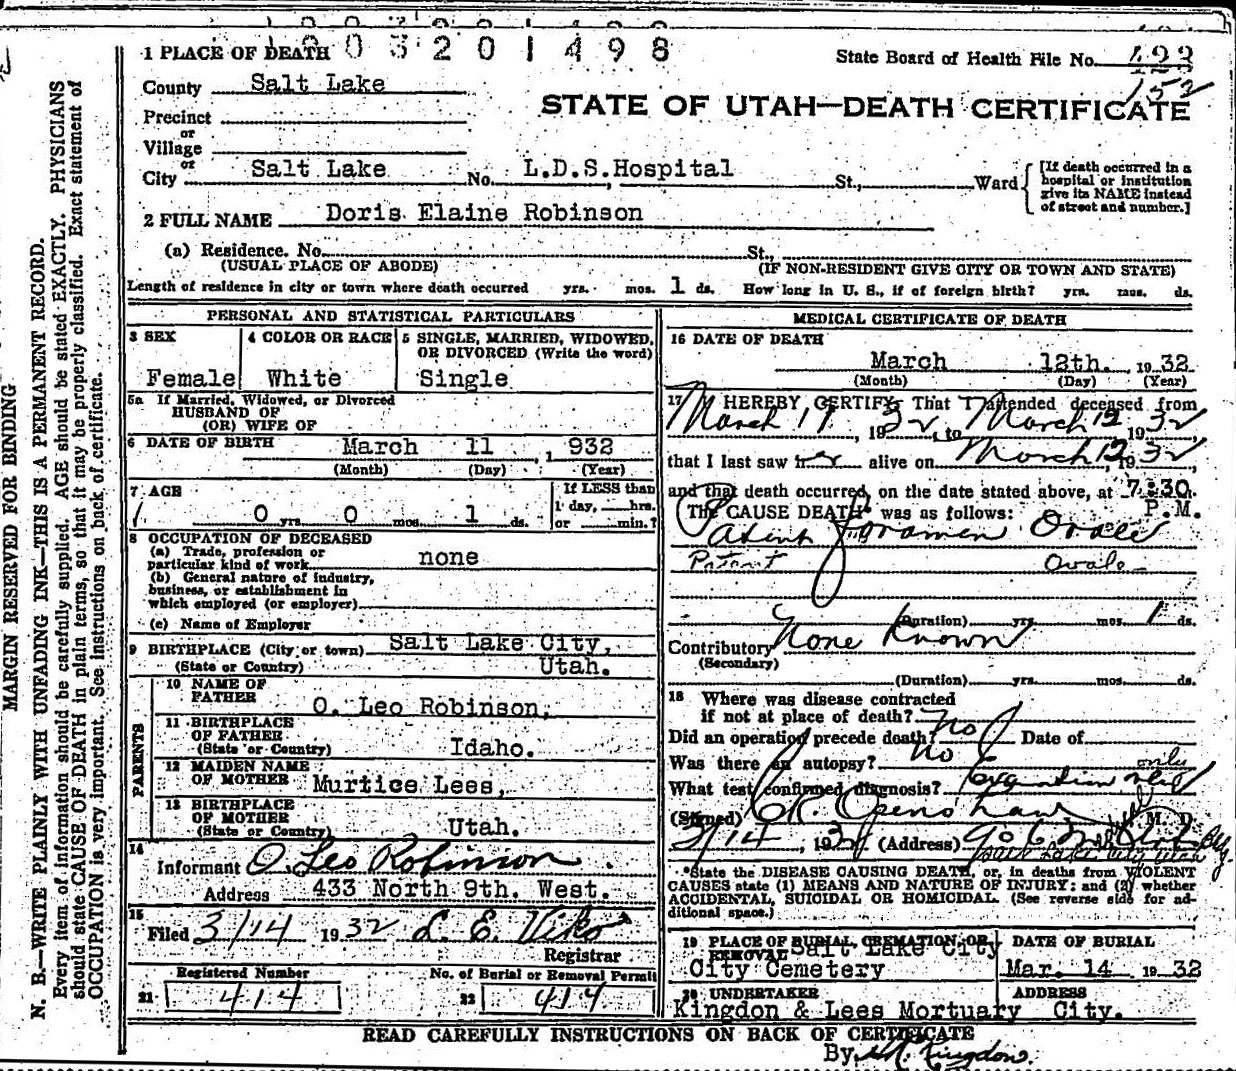 1 PLACE OF DEATH
1903201498
State Board of Health File No. 152
County Salt Lake
STATE OF UTAH—DEATH CERTIFICATE
Precinct
or
Village
or
City Salt Lake No. L.D.S.Hospital St., Ward
[If death occurred in a
hospital or institution
give its NAME instead
of street and number.]
2 FULL NAME Doris Elaine Robinson
(a) Residence. No. St.,
(USUAL PLACE OF ABODE) (IF NON-RESIDENT GIVE CITY OR TOWN AND STATE)
Length of residence in city or town where death occurred yrs. mos. 1 ds. How long in U. S., if of foreign birth? yrs. mos. ds.
PERSONAL AND STATISTICAL PARTICULARS
3 SEX
Female
4 COLOR OR RACE
White
5 SINGLE, MARRIED, WIDOWED,
OR DIVORCED (Write the word)
Single
5a If Married, Widowed, or Divorced
HUSBAND OF
(OR) WIFE OF
6 DATE OF BIRTH March 11, 1932
(Month) (Day) (Year)
7 AGE
0 yrs. 0 mos. 1 ds.
If LESS than
1 day, hrs.
or min.?
8 OCCUPATION OF DECEASED
(a) Trade, profession or
particular kind of work none
(b) General nature of industry,
business, or establishment in
which employed (or employer)
(c) Name of Employer
9 BIRTHPLACE (City or town) Salt Lake City,
(State or Country) Utah.
PARENTS
10 NAME OF
FATHER O. Leo Robinson,
11 BIRTHPLACE
OF FATHER
(State or Country) Idaho.
12 MAIDEN NAME
OF MOTHER Murtice Lees,
13 BIRTHPLACE
OF MOTHER
(State or Country) Utah.
14
Informant O. Leo Robinson
Address 433 North 9th. West.
15
Filed 3/14 1932 L. E. Viko
Registrar
Registered Number
21 414
No. of Burial or Removal Permit
22 414
MEDICAL CERTIFICATE OF DEATH
16 DATE OF DEATH
March 12th. 1932
(Month) (Day) (Year)
17 I HEREBY CERTIFY, That I attended deceased from
March 11, 1932, to March 12 1932,
that I last saw her alive on March 12, 1932,
and that death occurred, on the date stated above, at 7:30
P.M.
The CAUSE DEATH* was as follows:
Patent Foramen Ovale
Patent Ovale
(Duration) yrs. mos. 1 ds.
Contributory None Known
(Secondary)
(Duration) yrs. mos. ds.
18 Where was disease contracted
if not at place of death?
Did an operation precede death? No Date of
Was there an autopsy? No
What test confirmed diagnosis? only
(Signed) M. D.
3/14, 1932 (Address)
Salt Lake City Utah
*State the DISEASE CAUSING DEATH, or, in deaths from VIOLENT
CAUSES state (1) MEANS AND NATURE OF INJURY; and (2) whether
ACCIDENTAL, SUICIDAL OR HOMICIDAL. (See reverse side for ad-
ditional space.)
19 PLACE OF BURIAL, CREMATION, OR
REMOVAL Salt Lake City
City Cemetery
DATE OF BURIAL
Mar. 14 1932
20 UNDERTAKER
Kingdon & Lees Mortuary
ADDRESS
City.
READ CAREFULLY INSTRUCTIONS ON BACK OF CERTIFICATE
By Kingdon.
MARGIN RESERVED FOR BINDING
N. B.—WRITE PLAINLY WITH UNFADING INK—THIS IS A PERMANENT RECORD.
Every item of information should be carefully supplied. AGE should be stated EXACTLY. PHYSICIANS
should state CAUSE OF DEATH in plain terms, so that it may be properly classified. Exact statement of
OCCUPATION is very important. See instructions on back of certificate.